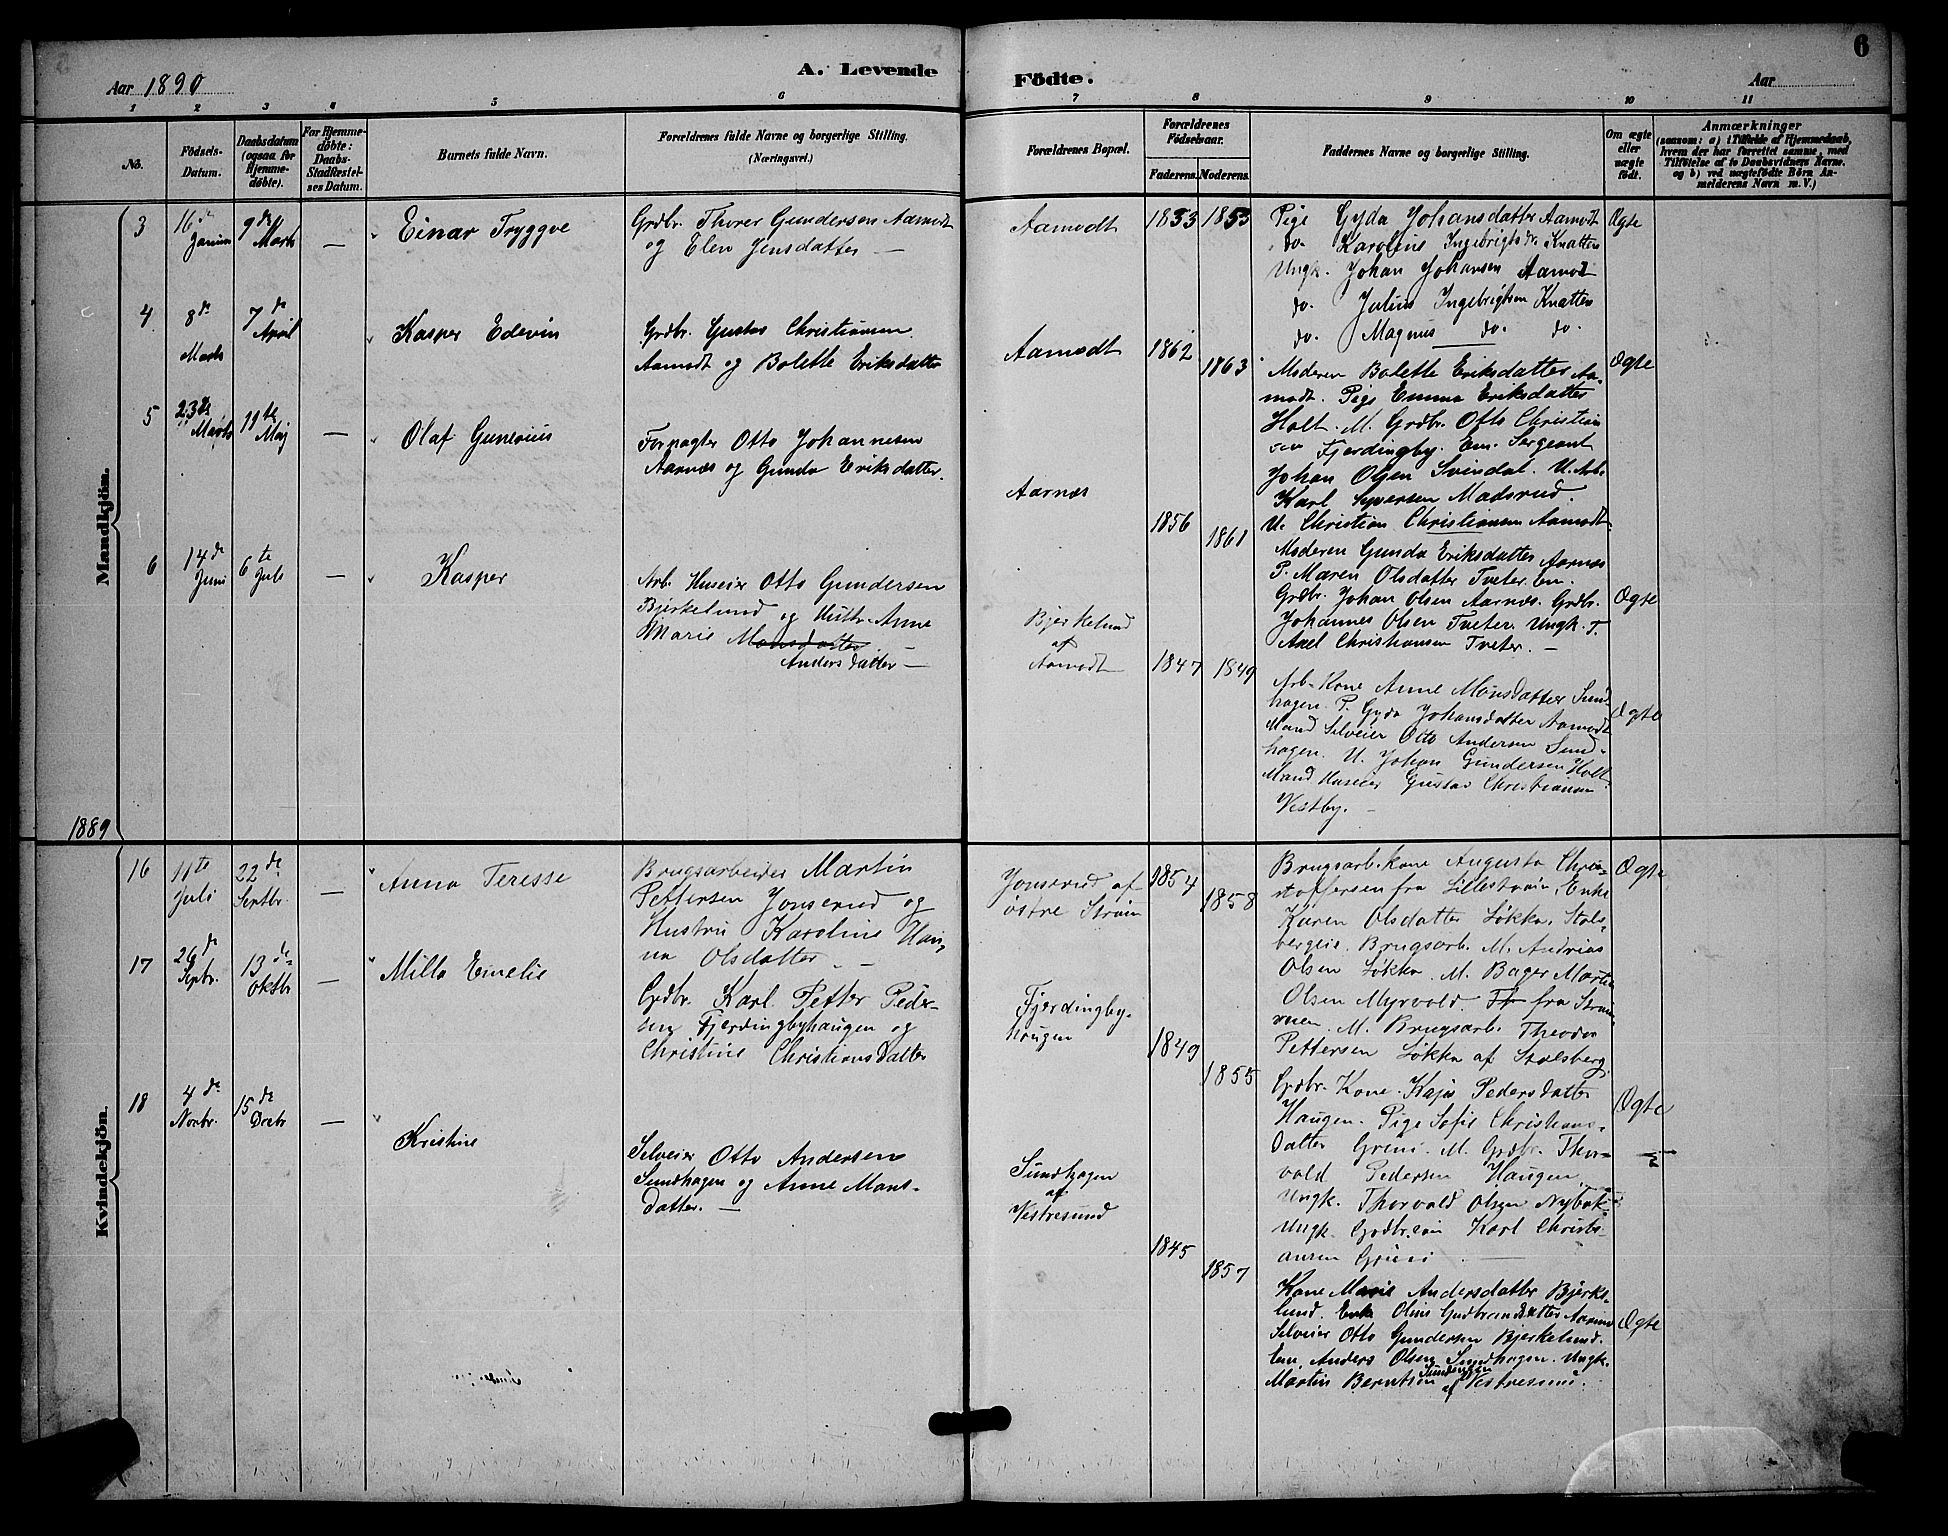 Aar 1890
A. Levende
Födte.
Aar
6
1 2 3 4 5 6 7 8 9 10 11
No.
Fødsels-
Datum.
Daabsdatum
(ogsaa for
Hjemme-
døbte).
For Hjemme-
døbte:
Daabs-
Stadfæstel-
ses Datum.
Barnets fulde Navn.
Forældrenes fulde Navne og borgerlige Stilling.
(Næringsvei.)
Forældrenes Bopæl.
Forældrenes
Fødselsaar.
Faderens. Moderens.
Faddernes Navne og borgerlige Stilling.
Om ægte
eller
uægte
født.
Anmærkninger
(saasom: a) i Tilfælde af Hjemmedaab,
hvem der har forrettet samme, med
Tilføielse af to Daabsvidners Navne.
og b) ved uægtefødte Børn An-
melderens Navn m. V.)
Mandkjön.
3
16de
Januar
9de
Marts
—
Einar Tryggve
Grdbr. Thorer Gundersen Aamodt
og Elen Jensdatter —
Aamodt
1853 1853
Pige Gyda Johansdatter Aamodt
do. Karoline Ingebrigtsdr Knatten
Ungk. Johan Johansen Aamodt
do. Julius Ingebrigtsen Knatten
do. Magnus do. do.
Ægte
4
8de
Marts
7de
April
Kasper Edevin
Grdbr. Gustav Christiansen
Aamodt og Bolette Eriksdatter
Aamodt
1862
1863
Moderen Bolette Eriksdatter Aa-
modt. Pige Emma Eriksdatter
Holt. M. Grdbr. Otto Christian
sen Fjerdingby. Em. Sergeant
Johan Olsen Svindal. U. Arb.
Karl Syversen Madsrud.
U. Christian Christiansen Aamodt
Ægte
5
23de
Marts
11te
Maj
—
Olaf Gunerius
Forpagter Otto Johannesen
Aarnæs og Gunda Eriksdatter.
Aarnæs
1856
1861
Moderen Gunda Eriksdatter Aarnæs
P. Maren Olsdatter Tveter. Em.
Grdbr. Johan Olsen Aarnæs. Grdbr.
Johannes Olsen Tveter. Ungk. T.
Axel Christiansen Tveter. —
Ægte
6
14de
Juni
6te
Juli
—
Kasper
Arb. Huseier Otto Gundersen
Bjerkelund og Hustr. Anne
Marie Monsdatter
Andersdatter —
Bjerkelund
af
Aamodt
1847 1849
Arb. Kone Anne Mónsdatter Sund
hagen. P. Gyda Johansdatter Aamodt
Mand Selveier Otto Andersen Sund-
hagen. U. Johan Gundersen Holt
Mand Huseier Gustav Christiansen
Vestby. —
Ægte
1889
Kvindekjön.
16
11te
Juli
22de
Septbr.
—
Anna Teresse
Brugsarbeider Martin
Pettersen Jonserud og
Hustru Karoline Han-
na Olsdatter —
Jonserud af
østre Strøm
1854
1858
Brugsarb. kone Augusta Chri-
stoffersen fra Lillestrøm, Enke
Karen Olsdatter Løkka, Stals-
bergeie. Brugsarb. M. Andreas
Olsen Løkka. M. Bager Martin
Olsen Myrvold. fra Strøm-
men. M. Brugsarb. Theodor
Pettersen Løkka af Stalsberg
Ægte
17
26de
Septbr.
13de
Oktbr
—
Milla Emelie
Grdbr. Karl Petter Peder-
sen Fjerdingbyhaugen og
Christine Christiansdatter
Fjerdingby-
haugen
1849
1855
Grdbr. Kone Kaja Pedersdatter
Haugen. Pige Sofie Christians-
datter Grini. M. Grdbr. Thor-
vald Pedersen Haugen
Ungk. Thorvald Olsen Nybak-
Ungk. Grdbr.søn Karl Christi-
ansen Grini —
Ægte
18
4de
Novbr.
15de
Decbr
—
Kristine
Selveier Otto Andersen
Sundhagen og Anne Mons-
datter. —
Sundhagen
af
Vestresund
1845
1857
Kone Marie Andersdatter Bjerke-
lund. Enke Oline Gudbrandsdatter Aarnæs
Selveier Otto Gundersen Bjerkelund.
Em. Anders Olsen Sundhagen. Ungk.
Martin Berntsen Sundengen
af Vestresund.
Ægte